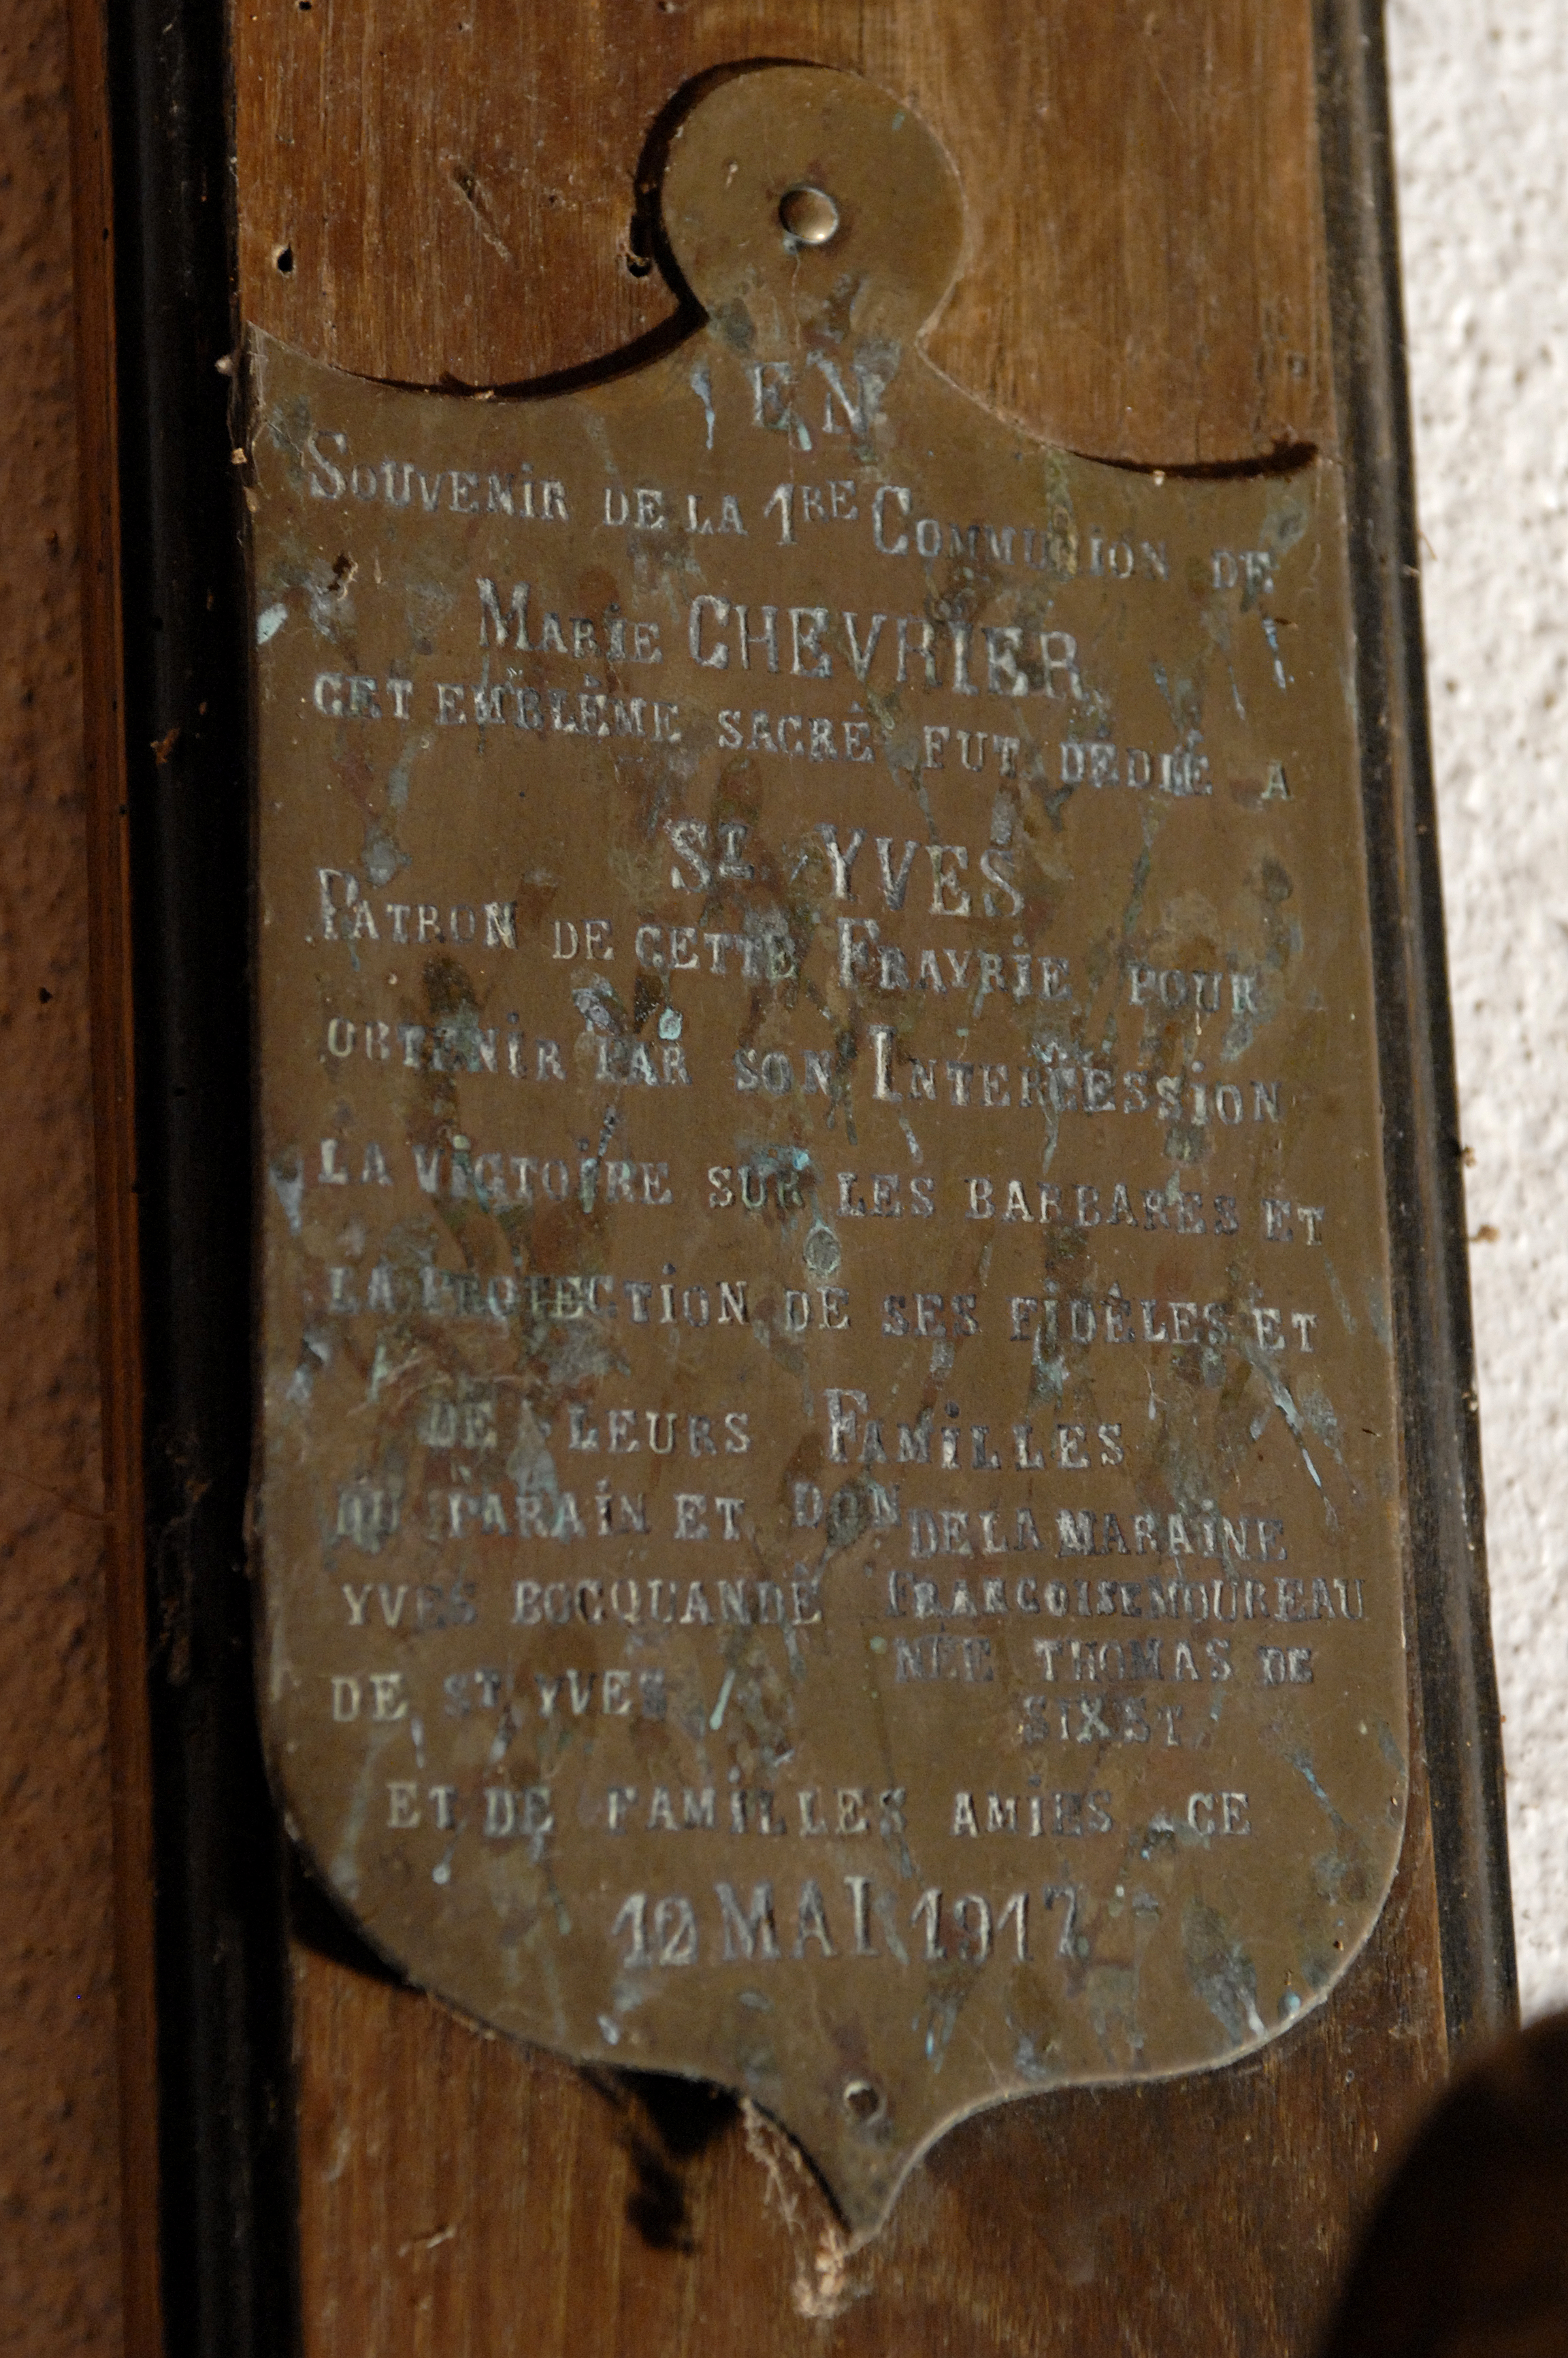 EN
SOUVENIR DE LA 1RE COMMUNION DE
MARIE CHEVRIER,
CET EMBLÊME SACRÉ FUT DÉDIÉ A
ST. YVES
PATRON DE CETTE FRAYRIE POUR
OBTENIR PAR SON INTERCESSION
LA VICTOIRE SUR LES BARBARES ET
LA PROTECTION DE SES FIDÈLES ET
DE LEURS FAMILLES
DON
DU PARAIN ET DE LA MARAINE
YVES BOCQUANDÉ FRANÇOISE NOUREAU
NÉE THOMAS DE
DE ST YVES SIXST.
ET DE FAMILLES AMIES CE
12 MAI 1917